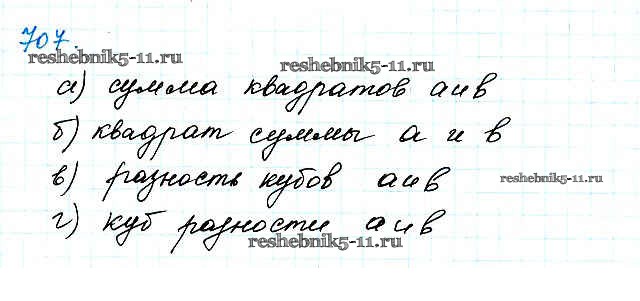 707.
reshebnik5-11.ru
reshebnik5-11.ru
а) сумма квадратов а и в
б) квадрат суммы а и в
в) разность кубов а и в
reshebnik5-11.ru
г) куб разности а и в
reshebnik5-11.ru